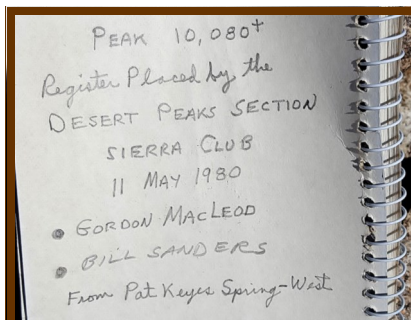 PEAK 10,080+
Register Placed by the
DESERT PEAKS SECTION
SIERRA CLUB
11 MAY 1980
GORDON MACLEOD
BILL SANDERS
From Pat Keyes Spring-West